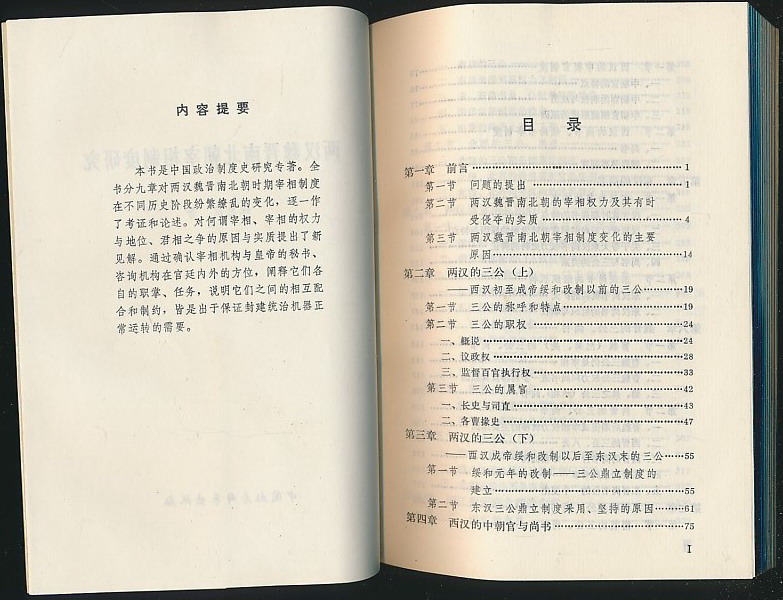 内容提要
本书是中国政治制度史研究专著。全
书分九章对两汉魏晋南北朝时期宰相制度
在不同历史阶段纷繁缭乱的变化，逐一作
了考证和论述。对何谓宰相、宰相的权力
与地位、君相之争的原因与实质提出了新
见解。通过确认宰相机构与皇帝的秘书、
咨询机构在宫廷内外的方位，阐释它们各
自的职掌、任务，说明它们之间的相互配
合和制约，皆是出于保证封建统治机器正
常运转的需要。
目录
第一章 前言 1
第一节 问题的提出 1
第二节 两汉魏晋南北朝的宰相权力及其有时
受侵夺的实质 4
第三节 两汉魏晋南北朝宰相制度变化的主要
原因 14
第二章 两汉的三公（上）
——西汉初至成帝绥和改制以前的三公 19
第一节 三公的称呼和特点 19
第二节 三公的职权 24
一、概说 24
二、议政权 28
三、监督百官执行权 33
第三节 三公的属官 42
一、长史与司直 43
二、各曹掾史 47
第三章 两汉的三公（下）
——西汉成帝绥和改制以后至东汉末的三公 55
第一节 绥和元年的改制——三公鼎立制度的
建立 55
第二节 东汉三公鼎立制度采用、坚持的原因 61
第四章 西汉的中朝官与尚书 75
I